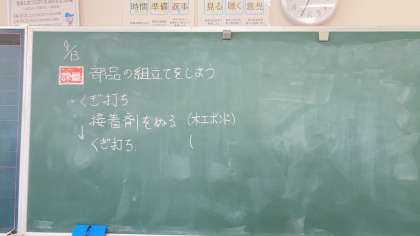 時間 準備 返事
見る 聴く 意見
9/13
課題 部品の組立てをしよう
くぎ打ち
接着剤をぬる (木工ボンド)
↓
くぎ打ち (